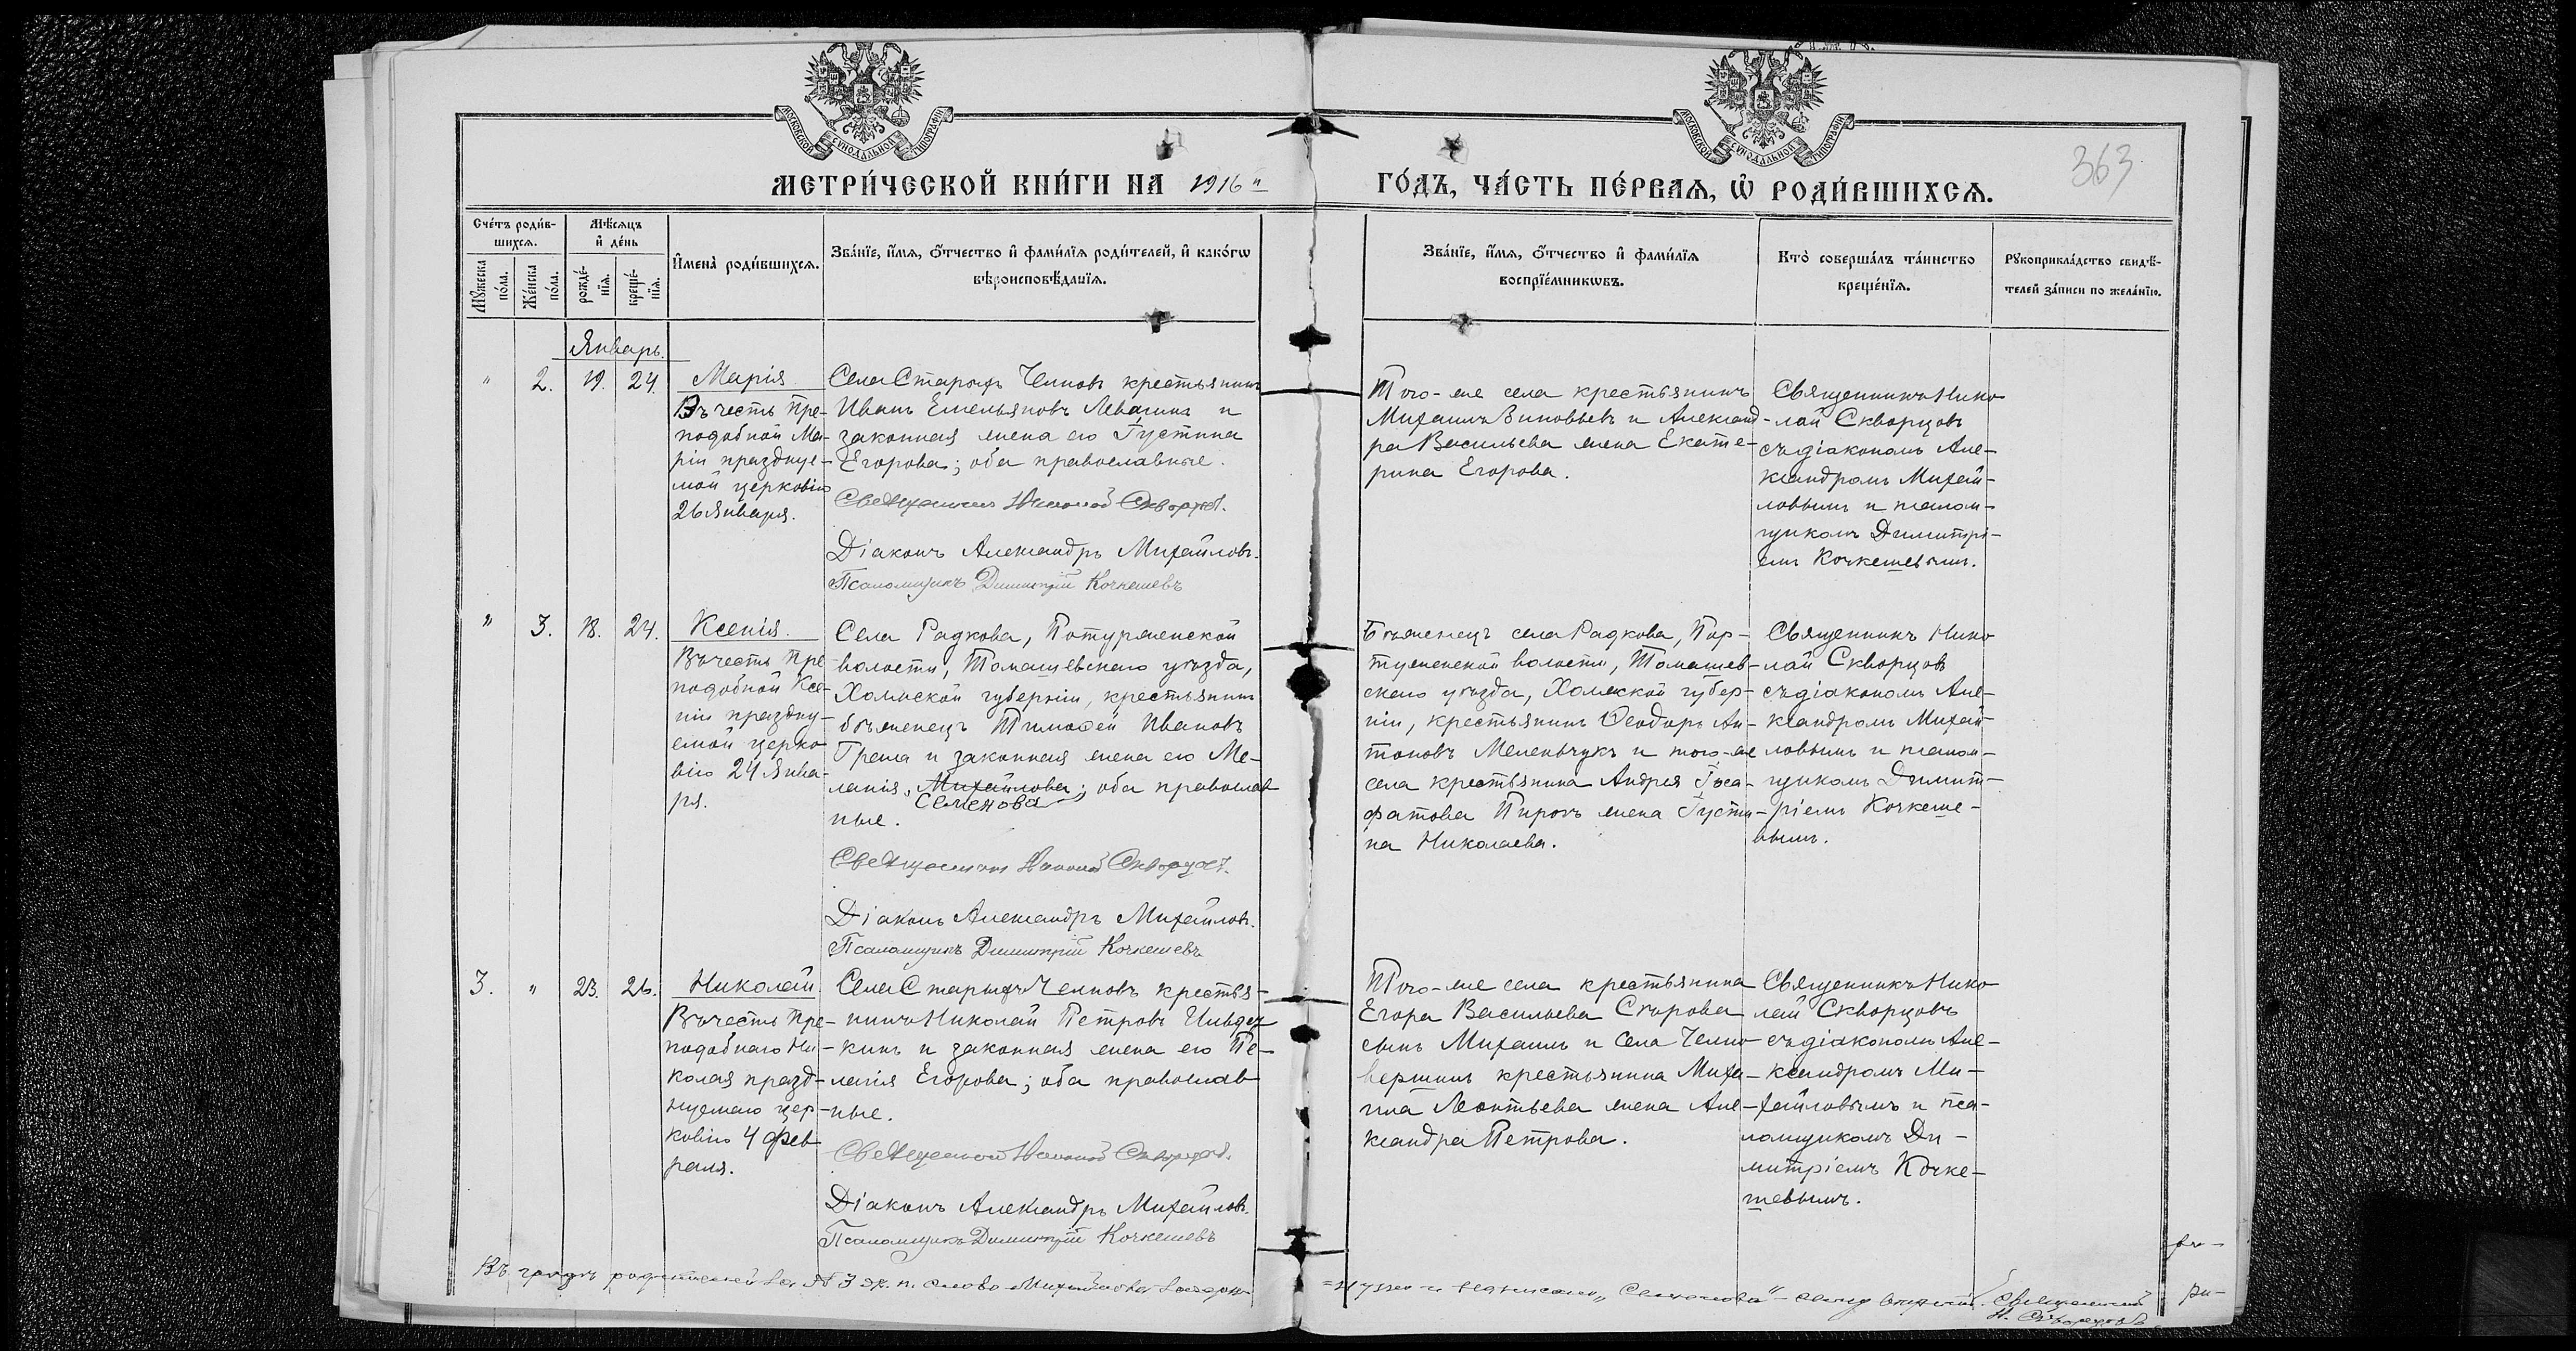 МОСКОВСКОЙ СѴНОДАЛЬНОЙ ТИПОГРАФІИ
МОСКОВСКОЙ СѴНОДАЛЬНОЙ ТИПОГРАФІИ
363
МЕТРИ́ЧЕСКОЙ КНИ́ГИ НА 1916 й
ГО́ДЪ, ЧА́СТЬ ПЕ́РВАѦ, Ѽ РОДИ́ВШИХСѦ.
Сче́тъ роди́в-
шихсѧ.
Мꙋ́жеска
по́ла.
Же́нска
по́ла.
Мѣ́сѧцъ
и҆ де́нь
рожде́-
нїѧ.
креще́-
нїѧ.
И҆мена̀ роди́вшихсѧ.
Зва́нїе, и҆́мѧ, ѻ҆́тчество и҆ фами́лїѧ роди́телей, и҆ како́гѡ
вѣроисповѣ́данїѧ.
Зва́нїе, и҆́мѧ, ѻ҆́тчество и҆ фами́лїѧ
воспрїе́мникѡвъ.
Кто̀ соверша́лъ та́инство
креще́нїѧ.
Рꙋкоприкла́дство свидѣ́-
телей за́писи по жела́нїю.
Январь.
" 2. 19. 24.
Марія
Въ честь Пре-
подобной Ма-
ріи праздуе-
мой церковію
26 Января.
Села Старыхъ Челновъ крестьянинъ
Иванъ Емельяновъ Левагинъ и
законная жена его Іустина
Егорова; оба православные.
Священникъ Николай Скворцов.
Діаконъ Александръ Михайловъ.
Псаломщикъ Димитрій Кочкешевъ
Того-же села крестьянинъ
Михаилъ Зиновьевъ и Александ-
ра Васильева жена Екате-
рина Егорова.
Священникъ Нико
лай Скворцовъ
съ діакономъ Але-
ксандромъ Михай-
ловымъ и псалом-
щикомъ Димитрі-
емъ Кочкешевымъ.
" 3. 18. 24.
Ксенія.
Въ честь Пре
подобной Ксе-
ніи праздну-
емой церко-
вію 24 Янва-
ря.
Села Радкова, Потурженской
волости, Томашевскаго уѣзда,
Холмской губерніи, крестьянинъ
бѣженецъ Тимоѳей Ивановъ
Грема и законная жена его Ме-
ланія, Михайлова; оба православ
Семенова
ные.
Священникъ Николай Скворцов.
Діаконъ Александръ Михайловъ.
Псаломщикъ Димитрій Кочкешевъ
Бѣженецъ села Радкова, Пор-
туженской волости, Томашев-
скаго уѣзда, Холмской губер-
ніи, крестьянинъ Ѳеодоръ Ан-
тоновъ Меленьчукъ и того-же
села крестьянина Андрея Іоса-
фатова Пирогъ жена Іусти-
на Николаева.
Священникъ Нико
лай Скворцовъ
съ діакономъ Але-
ксандромъ Михай-
ловымъ и псалом-
щикомъ Димит-
ріемъ Кочкеше-
вымъ.
3. " 23. 26.
Николай
Въ честь Пре-
подобнаго Ни-
колая празд-
нуемаго цер-
ковію 4 Фев
раля.
Села Старыхъ Челновъ крестья-
нинъ Николай Петровъ Ильдер
кинъ и законная жена его Пе-
лагія Егорова; оба православ
ные.
Священникъ Николай Скворцов.
Діаконъ Александръ Михайловъ.
Псаломщикъ Димитрій Кочкешевъ
Того-же села крестьянина
Егора Васильева Старова
сынъ Михаилъ и Села Челно
вершинъ крестьянина Миха-
ила Леонтьева жена Але-
ксандра Петрова.
Священникъ Нико
лай Скворцовъ
съ діакономъ Але-
ксандромъ Ми-
хайловымъ и пса-
ломщикомъ Ди-
митріемъ Кочке-
шевымъ.
Въ графѣ родителей за № 3 ж. п. слово Михайлова зачерк-
=нуто и написано „Семенова" - Священникъ
Н. Скворцовъ
ри-